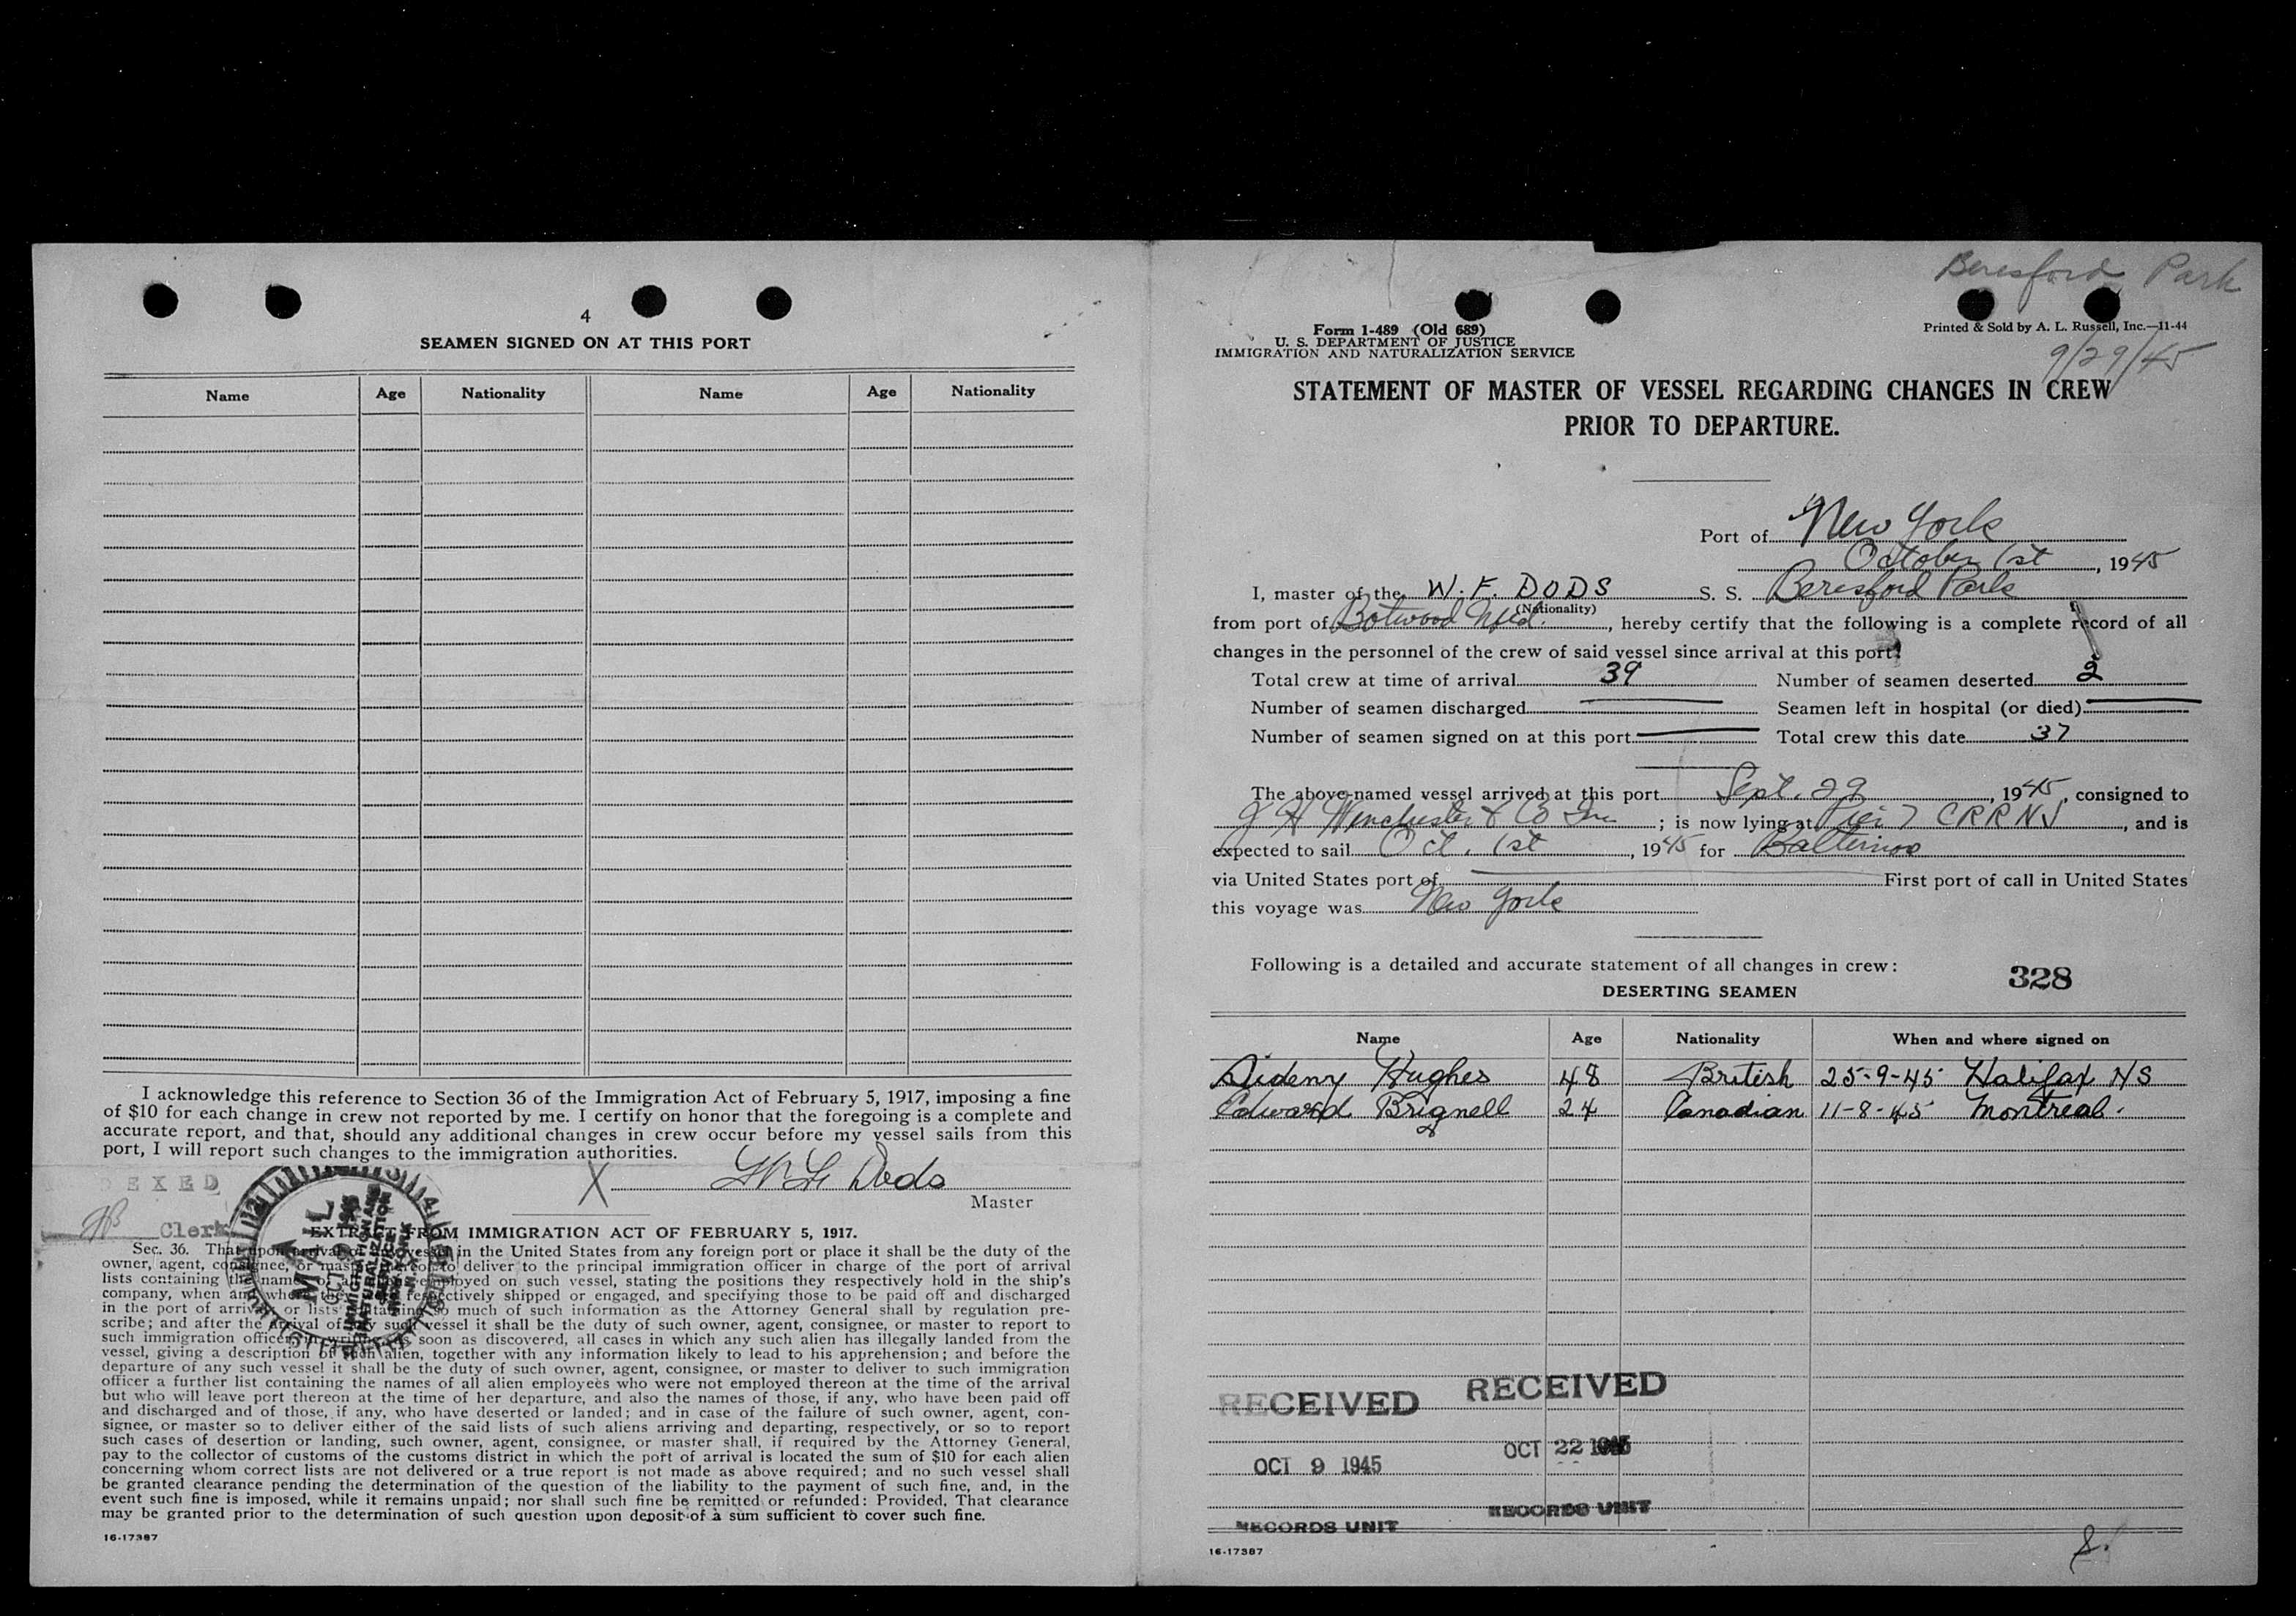 4
SEAMEN SIGNED ON AT THIS PORT
Name Age Nationality Name Age Nationality
I acknowledge this reference to Section 36 of the Immigration Act of February 5, 1917, imposing a fine
of $10 for each change in crew not reported by me. I certify on honor that the foregoing is a complete and
accurate report, and that, should any additional changes in crew occur before my vessel sails from this
port, I will report such changes to the immigration authorities.
EXED
X W F Dods
Master
Clerk
MAIL
IMMIGRATION AND
NATURALIZATION
SERVICE
EXTRACT FROM IMMIGRATION ACT OF FEBRUARY 5, 1917.
Sec. 36. That upon arrival of any vessel in the United States from any foreign port or place it shall be the duty of the
owner, agent, consignee, or master thereof to deliver to the principal immigration officer in charge of the port of arrival
lists containing the names of all aliens employed on such vessel, stating the positions they respectively hold in the ship's
company, when and where they were respectively shipped or engaged, and specifying those to be paid off and discharged
in the port of arrival; or lists containing so much of such information as the Attorney General shall by regulation pre-
scribe; and after the arrival of any such vessel it shall be the duty of such owner, agent, consignee, or master to report to
such immigration officer, in writing, as soon as discovered, all cases in which any such alien has illegally landed from the
vessel, giving a description of such alien, together with any information likely to lead to his apprehension; and before the
departure of any such vessel it shall be the duty of such owner, agent, consignee, or master to deliver to such immigration
officer a further list containing the names of all alien employees who were not employed thereon at the time of the arrival
but who will leave port thereon at the time of her departure, and also the names of those, if any, who have been paid off
and discharged and of those, if any, who have deserted or landed; and in case of the failure of such owner, agent, con-
signee, or master so to deliver either of the said lists of such aliens arriving and departing, respectively, or so to report
such cases of desertion or landing, such owner, agent, consignee, or master shall, if required by the Attorney General,
pay to the collector of customs of the customs district in which the port of arrival is located the sum of $10 for each alien
concerning whom correct lists are not delivered or a true report is not made as above required; and no such vessel shall
be granted clearance pending the determination of the question of the liability to the payment of such fine, and, in the
event such fine is imposed, while it remains unpaid; nor shall such fine be remitted or refunded: Provided, That clearance
may be granted prior to the determination of such question upon deposit of a sum sufficient to cover such fine.
16-17387
Beresford Park
Form 1-489 (Old 689)
U. S. DEPARTMENT OF JUSTICE
IMMIGRATION AND NATURALIZATION SERVICE
Printed & Sold by A. L. Russell, Inc.—11-44
9/29/45
STATEMENT OF MASTER OF VESSEL REGARDING CHANGES IN CREW
PRIOR TO DEPARTURE.
Port of New York
October 1st, 1945
I, master of the W. F. DODS S. S. Beresford Park
(Nationality)
from port of Botwood Nfld., hereby certify that the following is a complete record of all
changes in the personnel of the crew of said vessel since arrival at this port:
Total crew at time of arrival 39 Number of seamen deserted 2
Number of seamen discharged Seamen left in hospital (or died)
Number of seamen signed on at this port Total crew this date 37
The above-named vessel arrived at this port Sept. 29, 1945, consigned to
J H Winchester & Co Inc; is now lying at Pier 7 CRRNJ, and is
expected to sail Oct. 1st, 1945 for Baltimore
via United States port of First port of call in United States
this voyage was New York
Following is a detailed and accurate statement of all changes in crew:
328
DESERTING SEAMEN
Name Age Nationality When and where signed on
Sideny Hughes 48 British 25-9-45 Halifax NS
Edward Brignell 24 Canadian 11-8-45 Montreal.
RECEIVED
OCT 9 1945
RECORDS UNIT
RECEIVED
OCT 22 1945
RECORDS UNIT
16-17387
8.